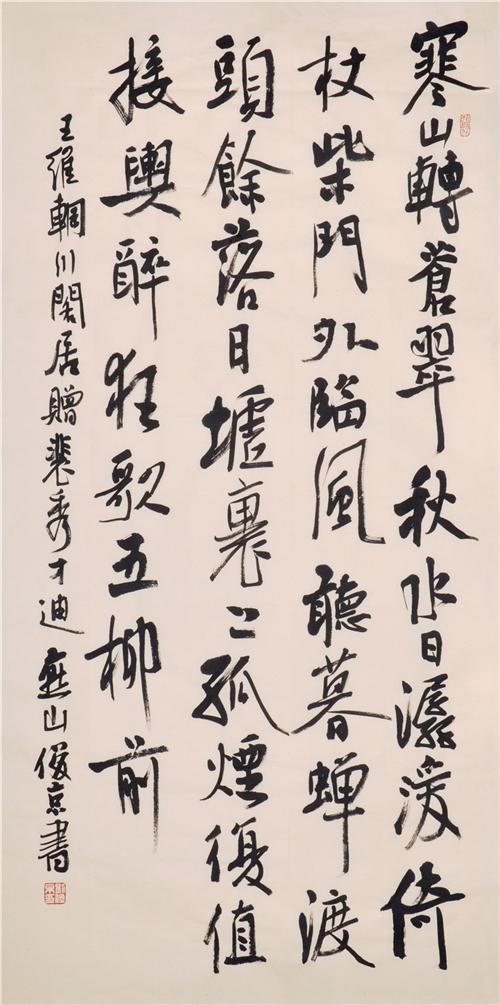 寒山轉蒼翠秋水日潺湲倚
杖柴門外臨風聽暮蝉渡
頭餘落日墟裏上孤煙復值
接輿醉狂歌五柳前
王維輞川閑居贈裴秀才迪 燕山俊京書